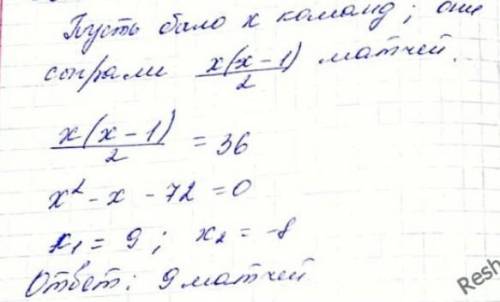 Пусть было x команд; они
сыграли x(x-1)/2 матчей.
x(x-1)/2 = 36
x² - x - 72 = 0
x₁ = 9; x₂ = -8
Ответ: 9 матчей
Resh